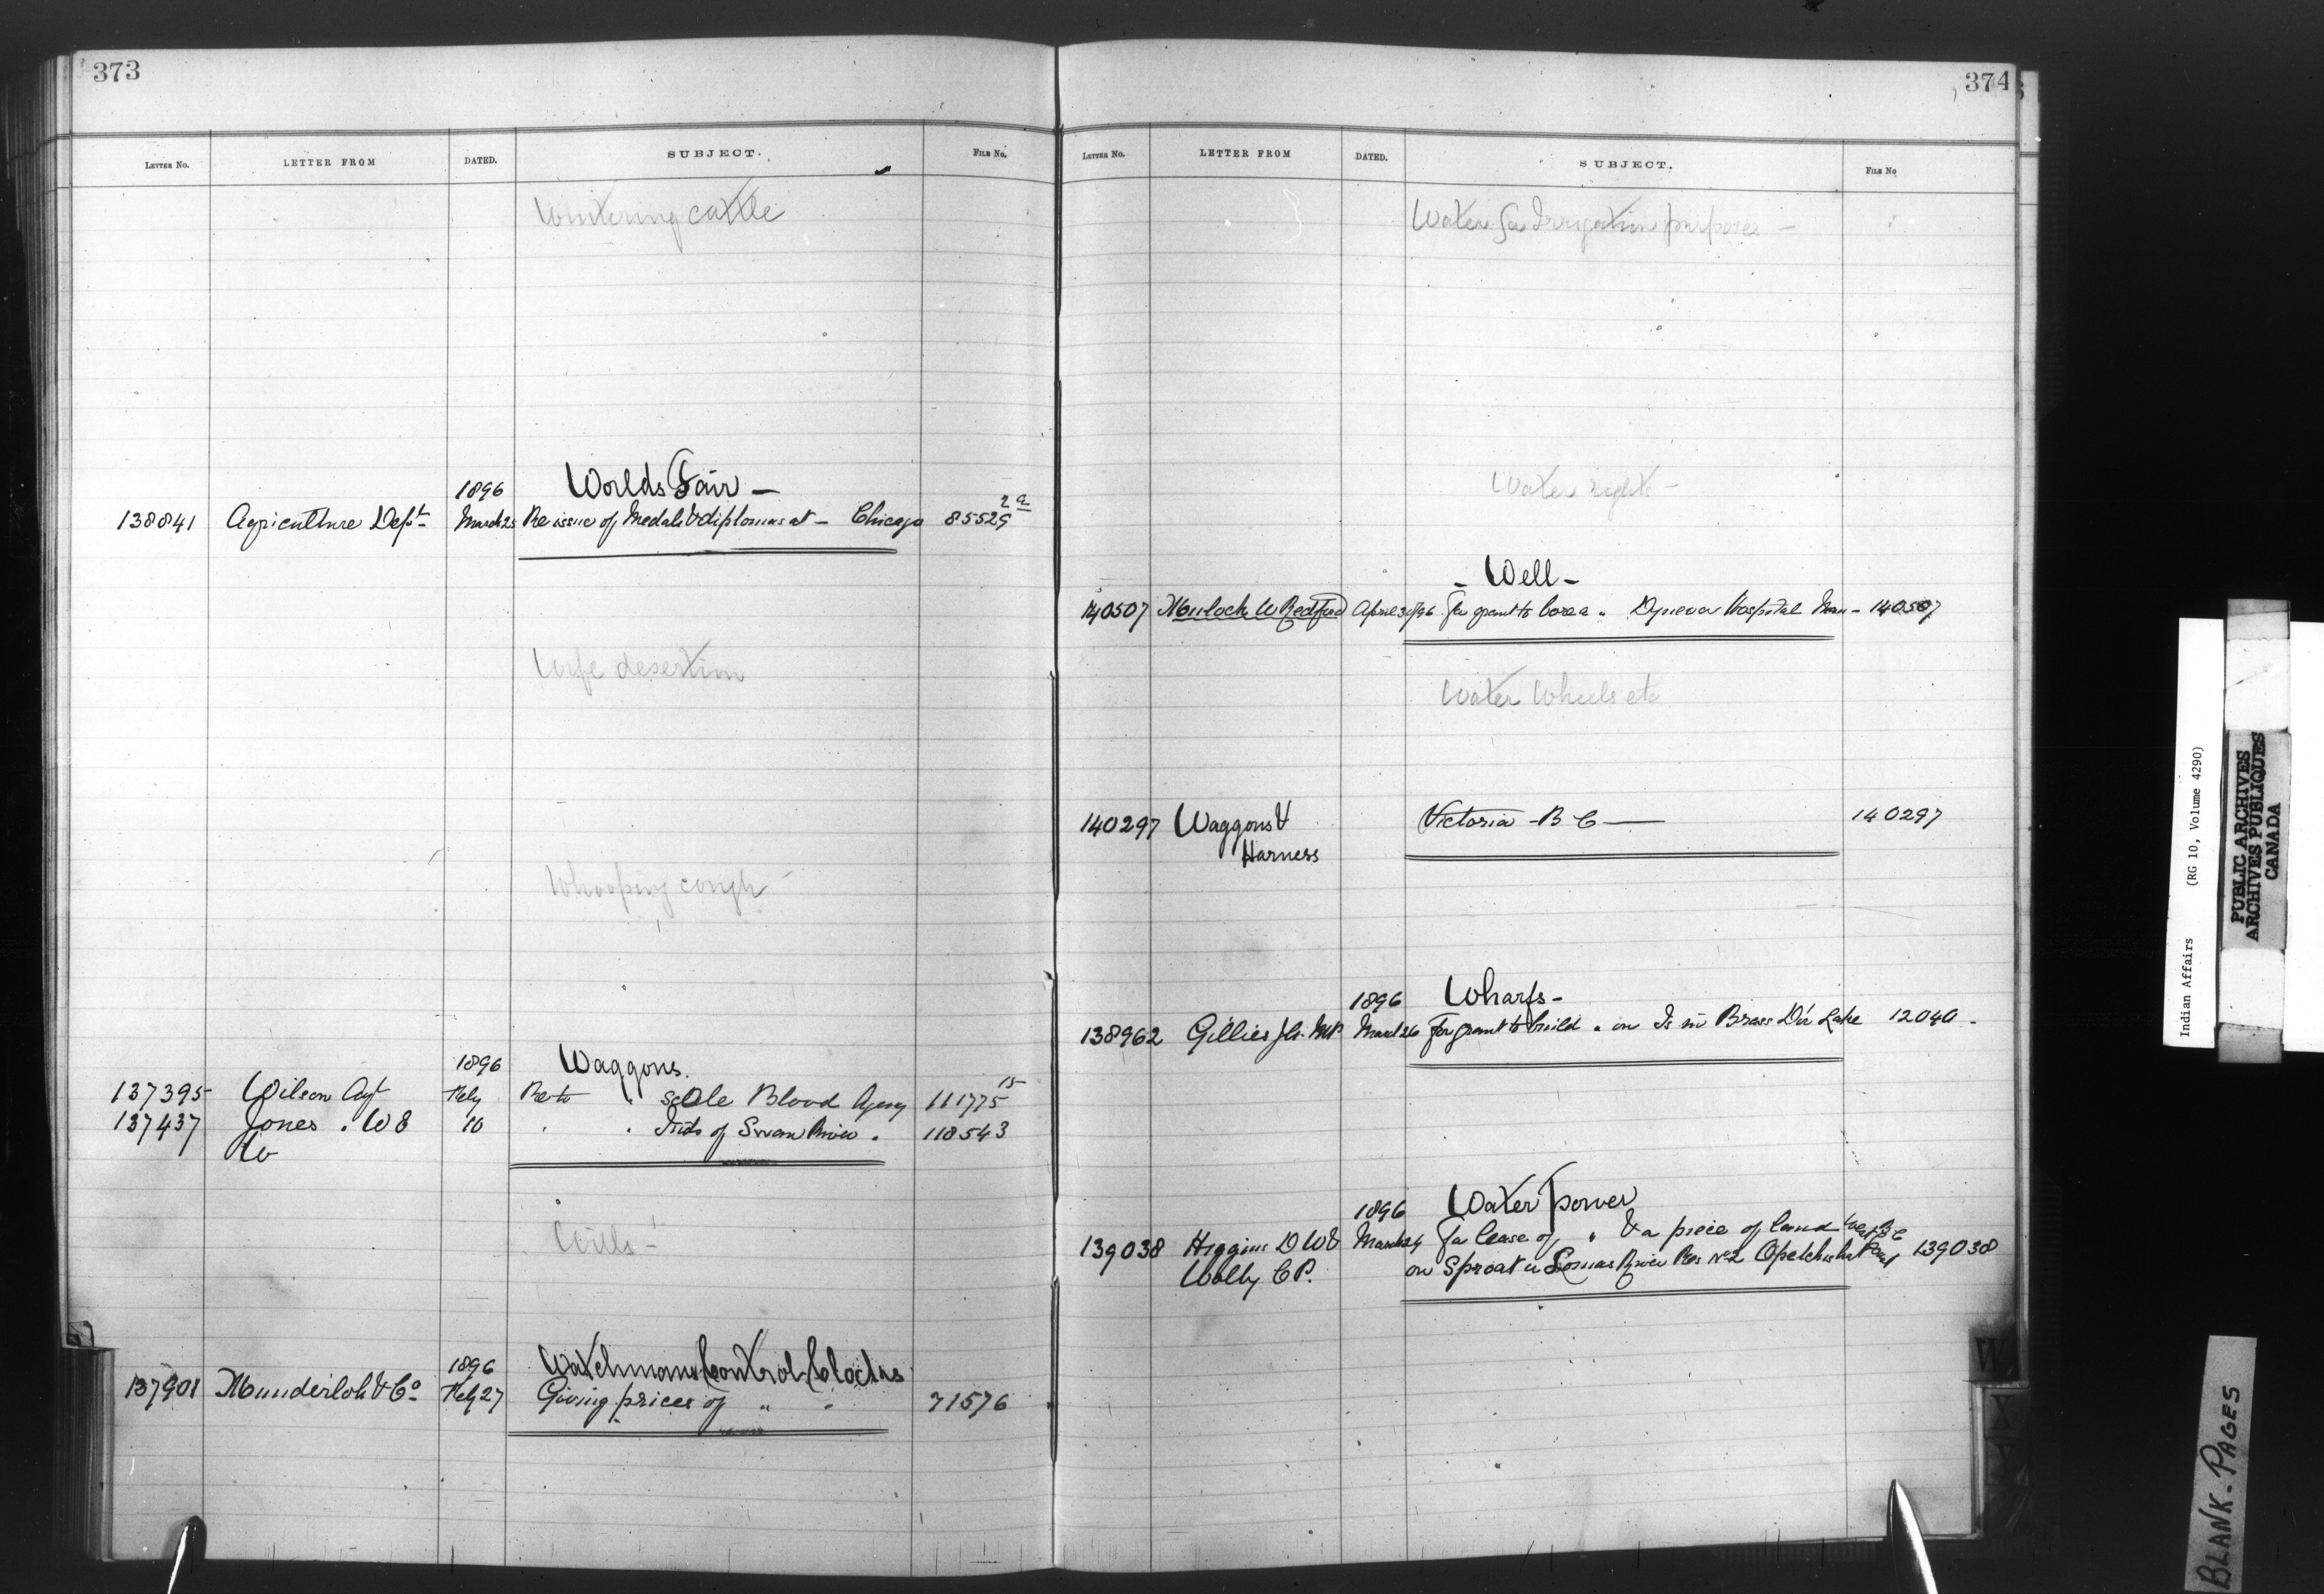 373
LETTER NO. LETTER FROM DATED. SUBJECT. FILE No.
Wintering cattle
1896 Worlds Fair —
138841 Agriculture Dept March 25 Re issue of Medals & diplomas at — Chicago 85529 2a
Wife desertion
Whooping cough
1896 Waggons.
137395 Wilson Agt Feby Re to " Blood Agency 111775 15
137437 Jones . W E 10 " " Inds of Swan River . 118543
Do
Wills —
1896 Watchmans Control Clocks
137901 Munderloh & Co Feby 27 Giving prices of " " 71576
374
LETTER NO. LETTER FROM DATED. SUBJECT. FILE No
Water for Irrigation purposes —
Water rights —
— Well —
140507 Mulock W Redford April 30/96 For grant to bore a " Dynevor Hospital Man — 140507
Water Wheels etc
140297 Waggons & Victoria — B C — 140297
Harness
1896 Wharfs —
138962 Gillies J A. MP March 26 For grant to build " on Is in Brass D'or Lake 12040 -
1896 Water power
139038 Higgins D W & March 24 For lease of " & a piece of land West B C
Wolly C P. on Sproat or Somas River Res No 2 Opetchisht 139038
W
X
Y
Indian Affairs (RG 10, Volume 4290)
PUBLIC ARCHIVES
ARCHIVES PUBLIQUES
CANADA
BLANK-PAGES